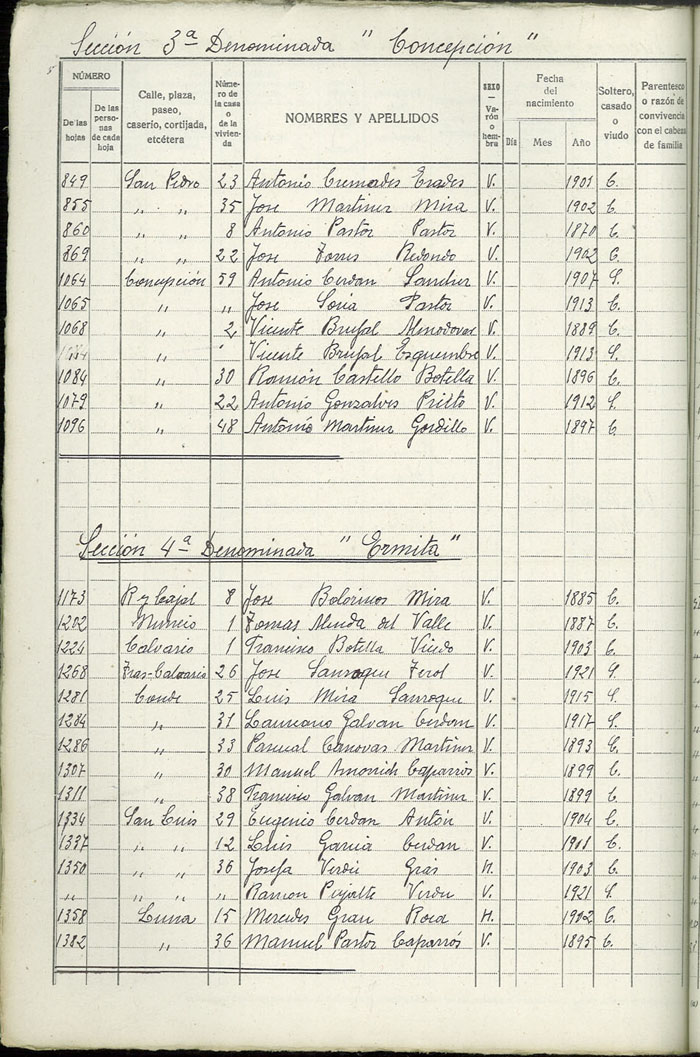 Sección 3ª Denominada " Concepción "
NÚMERO De las hojas De las personas de cada hoja Calle, plaza, paseo, caserio, cortijada, etcétera Número de la casa o de la vivienda NOMBRES Y APELLIDOS SEXO — Varón o hembra Fecha del nacimiento Día Mes Año Soltero, casado o viudo Parentesco o razón de convivencia con el cabeza de familia
849 San Pedro 23 Antonio Cremades Erades V. 1901 C.
855 " " 35 Jose Martinez Mira V. 1902 C.
860 " " 8 Antonio Pastor Pastor V. 1870 C.
869 " " 22 Jose Torres Redondo V. 1902 C.
1064 Concepción 59 Antonio Cerdan Sanchez V. 1907 S.
1065 " " Jose Soria Pastor V. 1913 C.
1068 " 2 Vicente Brufal Almodovar V. 1889 C.
" " Vicente Brufal Esquembre V. 1913 S.
1084 " 30 Ramón Castello Botella V. 1896 C.
1079 " 22 Antonio Gonzalves Prieto V. 1912 S.
1096 " 48 Antonio Martinez Gordillo V. 1897 C.
Sección 4ª Denominada " Ermita "
1173 R y Cajal 8 Jose Bolorinos Mira V. 1885 C.
1202 1 Tomas del Valle V. 1887 C.
1224 Calvario 1 Francisco Botella V. 1903 C.
1268 Tras-Calvario 26 Jose Sanroque V. 1921 S.
1281 Conde 25 Luis Mira Sanroque V. 1915 S.
1284 " 31 Laureano Galvan Cerdan V. 1917 S.
1286 " 33 Pascual Canovas Martinez V. 1893 C.
1307 " 30 Manuel Caparrós V. 1899 C.
1311 " 38 Francisco Galvan Martinez V. 1899 C.
1334 San Luis 29 Eugenio Cerdan Antón V. 1904 C.
1337 " " 12 Luis Garcia Cerdan V. 1901 C.
1350 " " 36 Josefa Verdú Gras H. 1903 C.
" " " " Ramon Pujalte Verdu V. 1921 S.
1358 Luna 15 Mercedes Grau Roca H. C.
1382 " 36 Manuel Pastor Caparrós V. 1895 C.